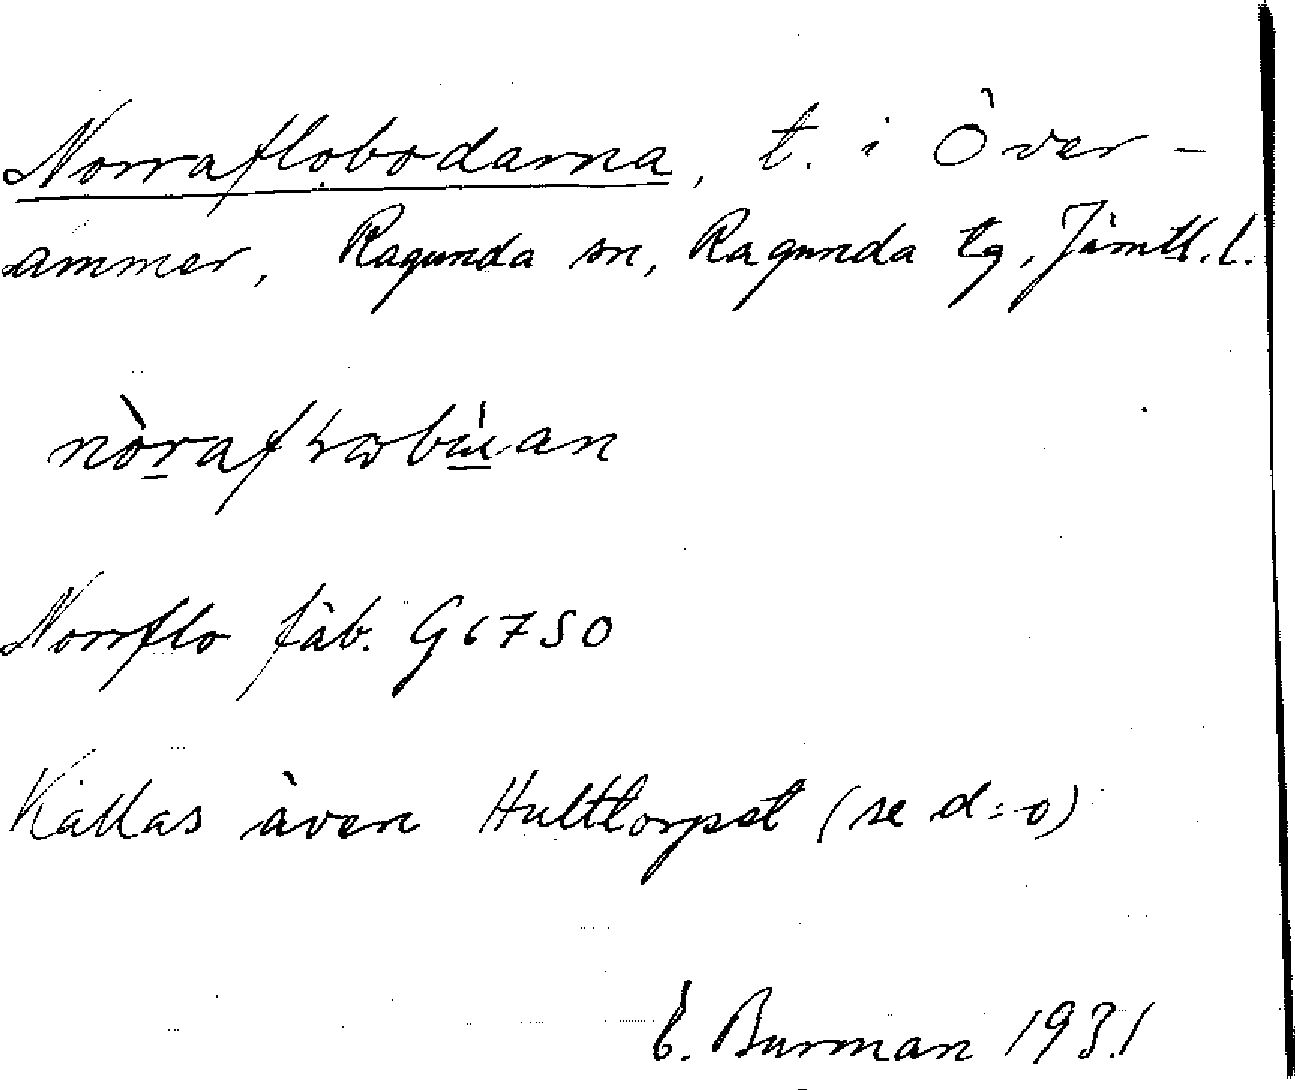 Norraflobodarna, t. i Över-
ammer, Ragunda sn, Ragunda tg, Jämtl. l.
Norrflo fäb. G6750
Kallas även Hulttorpet (se d:o)
E. Burman 1931